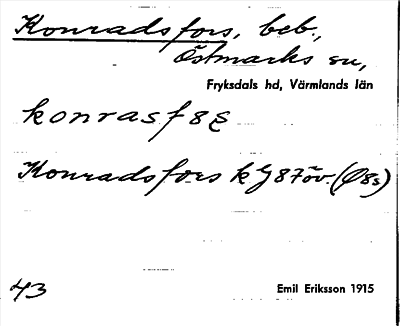 Konradsfors, beb.,
Östmarks sn,
Fryksdals hd, Värmlands län
konrasf8s
Konradsfors kJ87öv. (Ø8s)
43
Emil Eriksson 1915